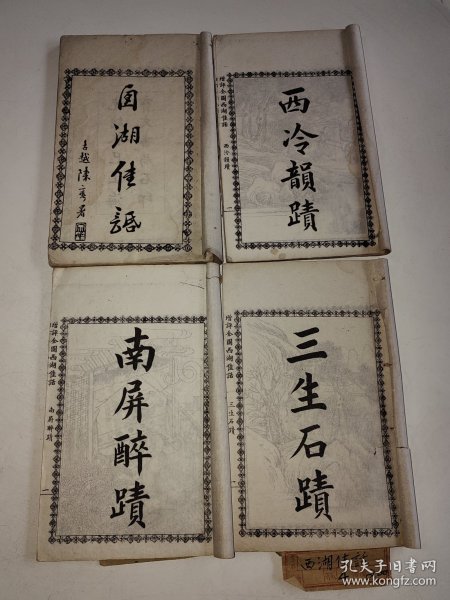 西湖佳話
古越陳
署
西冷韻蹟
增評全圖西湖佳話
西泠韻蹟
南屏醉蹟
增評全圖西湖佳話
南屏醉蹟
三生石蹟
增評全圖西湖佳話
三生石蹟
西湖佳話
孔夫子旧书网
kongfz.com